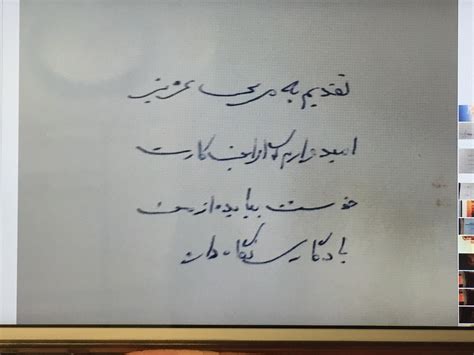 تقدیم به مربی عزیز
امیدوارم که از این کارت
خوست بیاید و از من
یادگاری نگاه دار